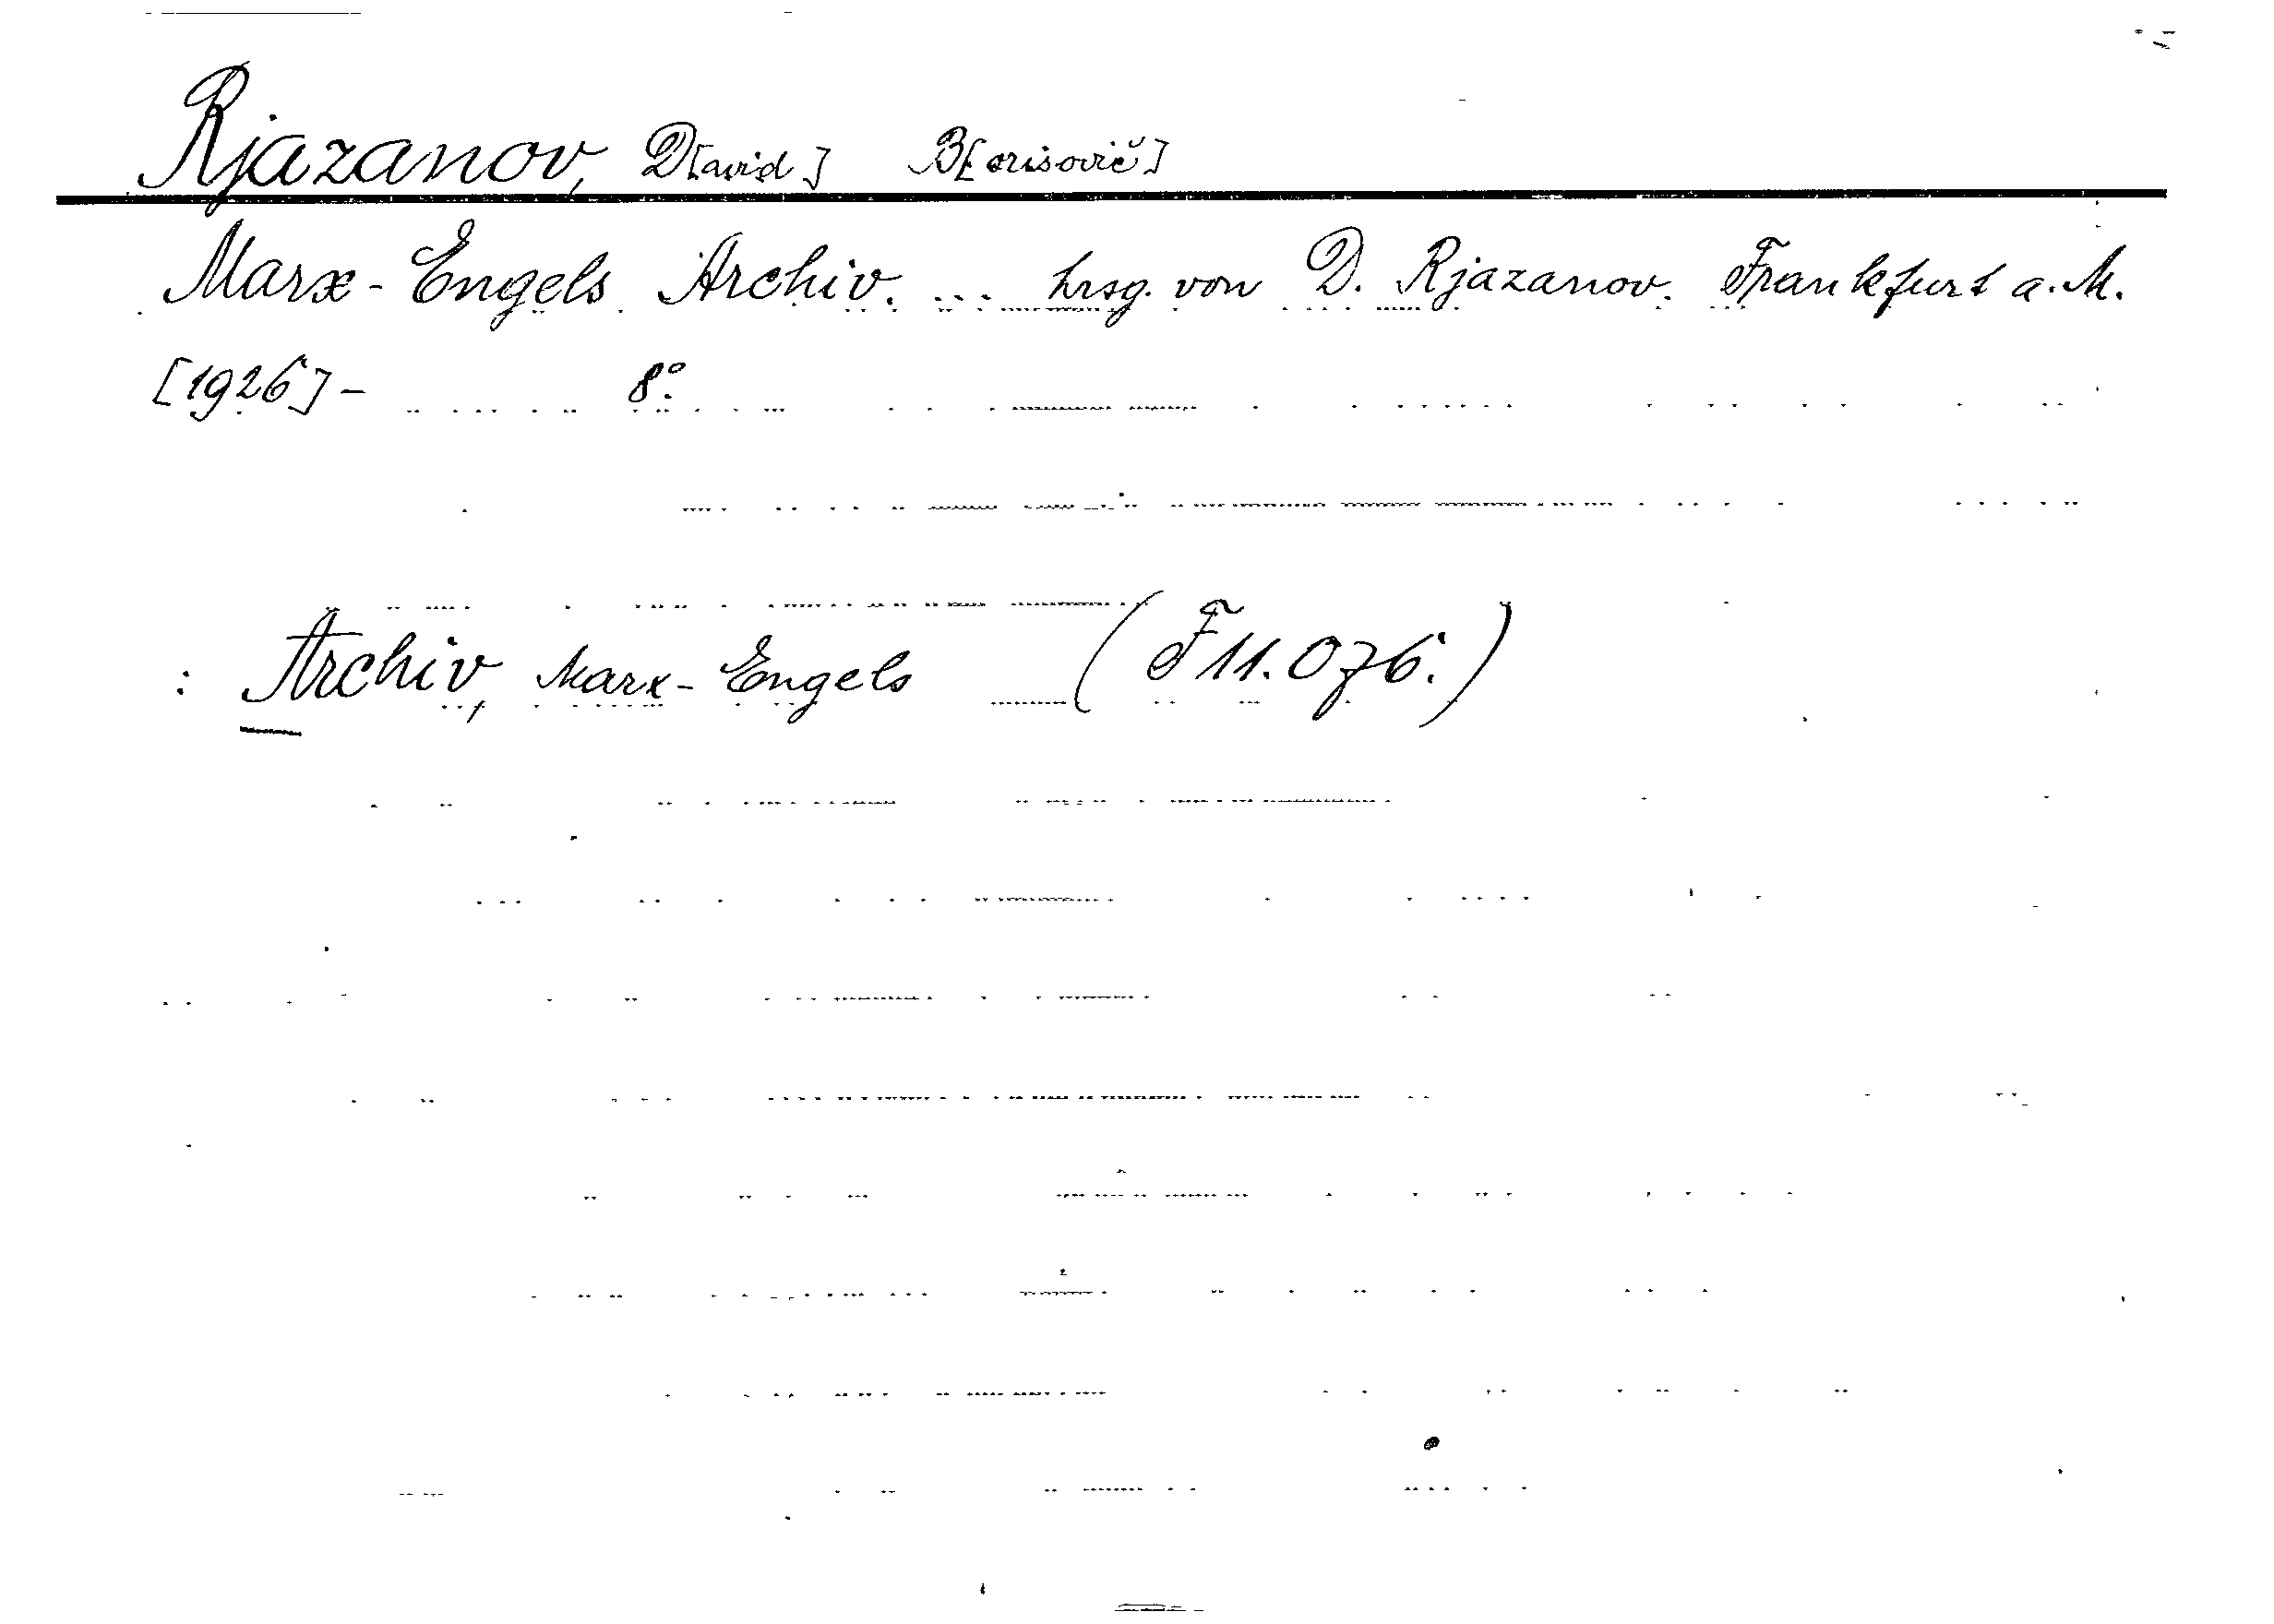 Rjazanov, D[avid] B[orisovič]
Marx-Engels Archiv. ... hrsg. von D. Rjazanov. Frankfurt a. M.
[1926]- 8°.
: Archiv, Marx-Engels (F 11.076.)